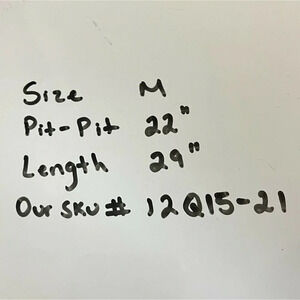 Size M
Pit-Pit 22"
Length 29"
Our SKU# 12Q15-21